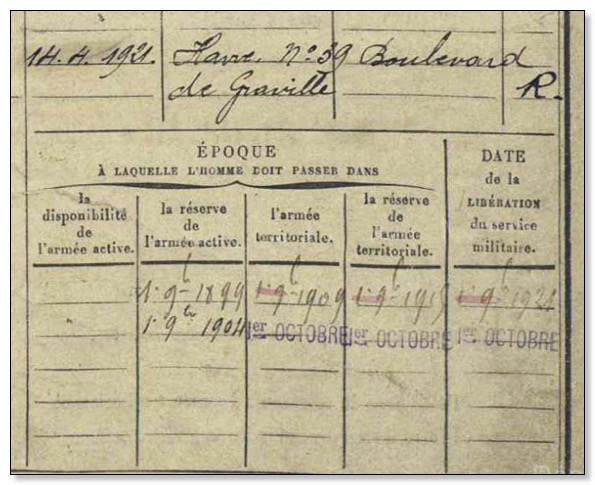 14.4.1921. Havre. N° 39 Boulevard
de Graville R.
ÉPOQUE
À LAQUELLE L'HOMME DOIT PASSER DANS
la disponibilité de l'armée active.
la réserve de l'armée active.
l'armée territoriale.
la réserve de l'armée territoriale.
DATE de la LIBÉRATION du service militaire.
1. 9bre 1899 1. 9bre 1909 1. 9bre 1915 1. 9bre 1921
1. 9bre 1904 1er OCTOBRE 1er OCTOBRE 1er OCTOBRE